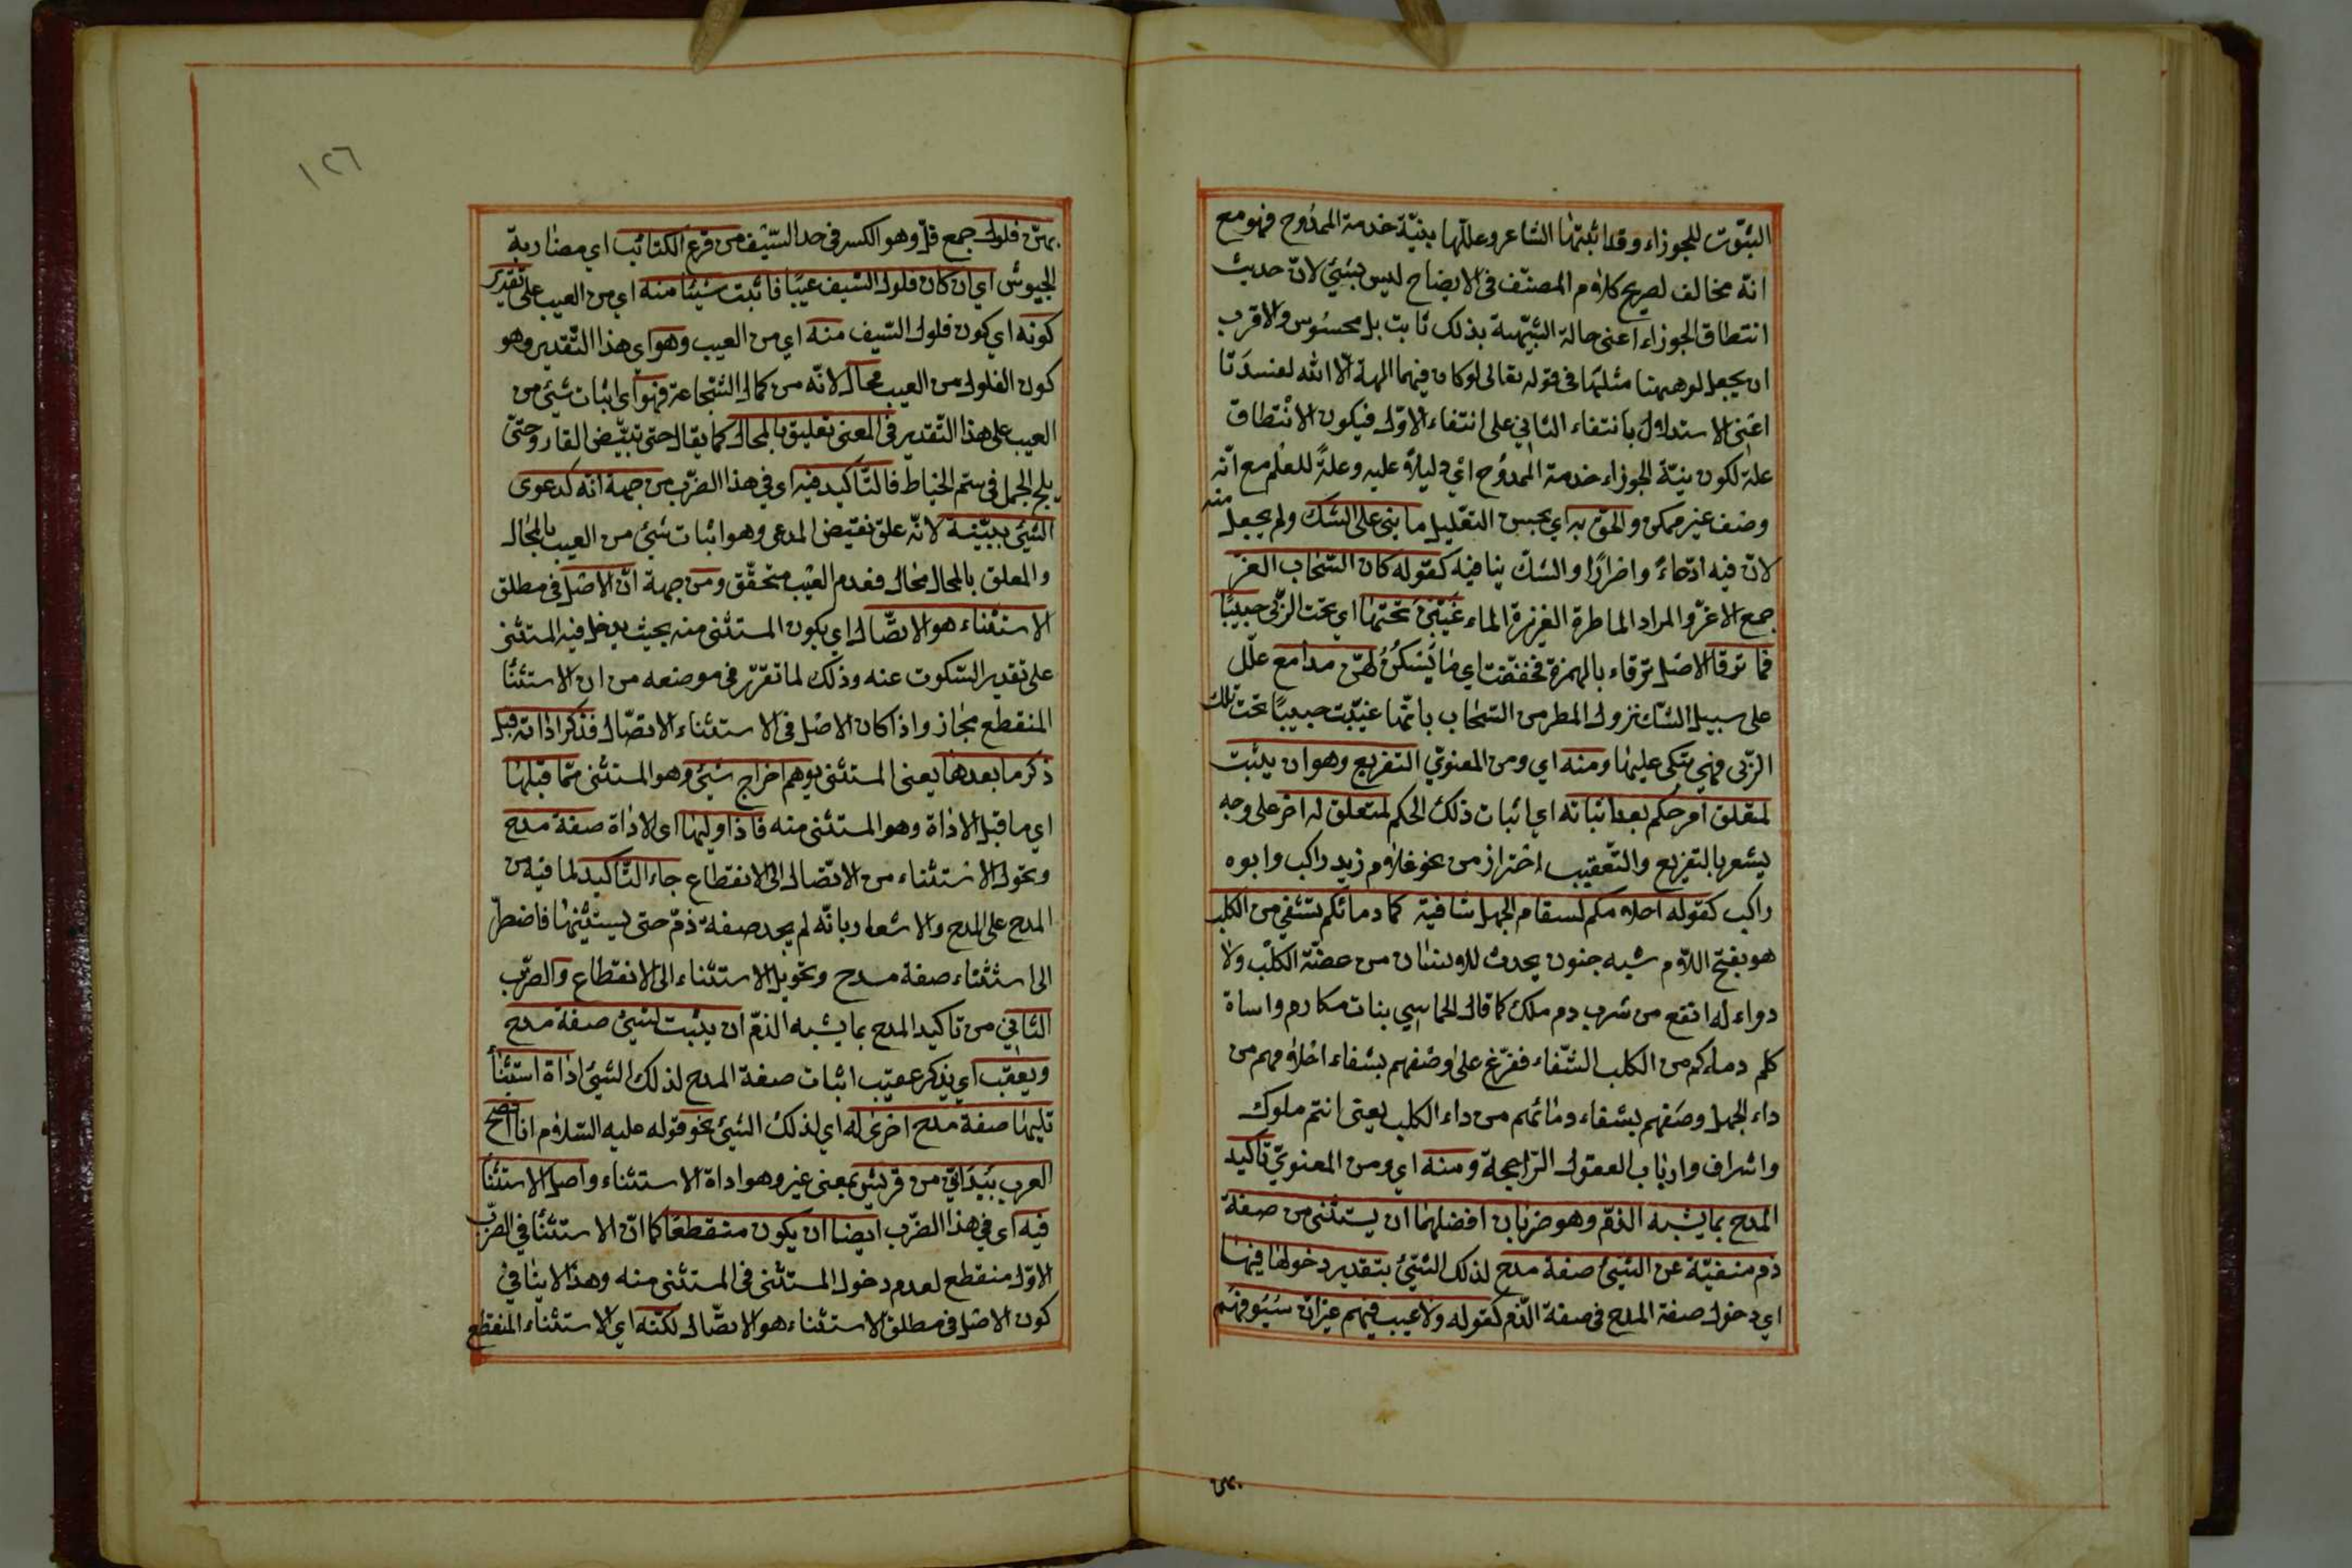 الثبوت للجوزاء وقد اثبتها الشاعر وعللّها بنيّة خدمة الممدوح فهو مع
انّه مخالف لصريح كلام المصنّف فى الايضاح ليس بشيئ لانّ حديث
انتطاق الجوزاء اعنى حالة الشبيهة بذلك ثابت بل محسوس والاقرب
ان يجعل لو ههنا مثلها فى قوله تعالى لو كان فيهما الهة الّا الله لفسدَتا
اعنى الاستدلال بانتفاء الثاني على انتفاء الاوّل فيكون الانتطاق
علة لكون نيّة الجوزاء خدمة الممدوح اي دليلاً عليه وعلةً للعلم مع انّه
وصف غير ممكن والحق به اي بحسن التعليل ما بنى على الشك ولم يجعل منه
لانّ فيه ادّعاءً واصرارًا والشكّ ينافيه كقوله كان السّحاب الغرّ
جمع الاغرّ والمراد الماطرة الغزيرة الماء غيّبن تحتها اي تحت الرّبى حبيبًا
فما ترقا الاصل ترقاء بالهمزة فخففت اي ما يَسكُنُ لهنّ مدامع علّل
على سبيل الشّك نزول المطر من السّحاب بانّها غيّبت حبيبًا تحت تلك
الرّبى فهي تبكى عليها ومنه اي ومن المعنويّ التفريع وهو ان يثبت
لمتعلق امر حكم بعد اثباته اي اثبات ذلك الحكم لمتعلق له اخر على وجه
يشعر بالتفريع والتّعقيب احتراز من نحو غلام زيد راكب وابوه
راكب كقوله احلامكم لسقام الجهل شافية كما دمائكم تشفي من الكلب
هو بفتح اللّام شبه جنون يحدث للانسان من عضّة الكلب ولا
دواء له انفع من شرب دم ملك كما قال الحماسي بنات مكارم واساة
كلم دماءكم من الكلب الشّفاء ففرّع على وصفهم بشفاء احلامهم من
داء الجهل وصفهم بشفاء دمائهم من داء الكلب يعنى انتم ملوك
واشراف وارباب العقول الرّاجحة ومنه اي ومن المعنويّ تاكيد
المدح بما يشبه الذمّ وهو ضربان افضلهما ان يستثنى من صفة
ذم منفيّة عن الشيئ صفة مدح لذلك الشّيئ بتقدير دخولها فيها
اي دخول صفة المدح فى صفة الذّم كقوله ولا عيب فيهم غير انّ سيوفهم
بهنّ
١٢٦
بهنّ فلول جمع فلّ وهو الكسر فى حد السّيف من قرع الكتائب اي مضاربة
الجيوش اي ان كان فلول السّيف عيبًا فاثبت شيئا منه اي من العيب على تقدير
كونه اي كون فلول السّيف منه اي من العيب وهو اي هذا التّقدير وهو
كون الفلول من العيب محال لانّه من كمال الشّجاعة فهو اى اثبات شيئ من
العيب على هذا التّقدير فى المعنى تعليق بالمحال كما يقال حتى تبيّض القار وحتّى
يلج الجمل فى سّم الخياط فالتّاكيد فيه اى في هذا الضّرب من جهة انّه كدعوى
الشّيئ ببيّنة لانّه علق نقيض المدعى وهو اثبات شيئ من العيب بالمحال
والمعلق بالمحال محال فعدم العيب متحقّق ومن جهة انّ الاصل فى مطلق
الاستثناء هو الاتصّال اي يكون المستثنى منه بحيث يدخل فيه المستثنى
على تقدير السّكوت عنه وذلك لما تقرّر فى موضعه من ان الاستثنا
المنقطع مجاز واذا كان الاصل فى الاستثناء الاتصّال فذكر اداته قبل
ذكر ما بعدها يعنى المستثنى يوهم اخراج شيئ وهو المستثنى ممّا قبلها
اي ما قبل الاداة وهو المستثنى منه فاذا وليها اى الاداة صفة مدح
وتحول الاستثناء من الاتصّال الى الانقطاع جاء التّاكيد لما فيه من
المدح على المدح والاشعار بانّه لم يجد صفة ذمّ حتى يستثنيها فاضطرّ
الى استثناء صفة مدح وتحويل الاستثناء الى الانقطاع والضّرب
الثّاني من تاكيد المدح بما يشبه الذمّ ان يثبت لشيئ صفة مدح
ويعقّب اي يذكر عقيب اثبات صفة المدح لذلك الشيئ اداة استثنأ
تليها صفة مدح اخرى له اي لذلك الشيئ نحو قوله عليه السّلام انا افصح
العرب بيد انّي من قريش بمعنى غير وهو اداة الاستثناء واصل الاستثنأ
فيه اى في هذا الضّرب ايضا ان يكون منقطعًا كما انّ الاستثنأ في الضّرب
الاوّل منقطع لعدم دخول المستثنى فى المستثنى منه وهذا لا ينافي
كون الاصل فى مطلق الاستثناء هو الاتصّال لكنّه اي الاستثناء المنقطع